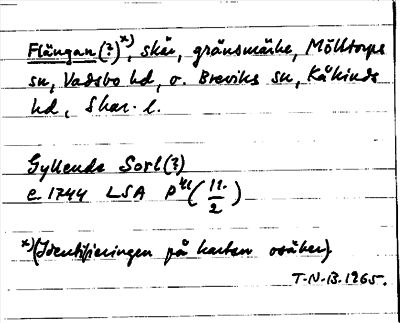 Flängan(?)x), skär, gränsmärke, Mölltorps
sn, Vadsbo hd, o. Breviks sn, Kåkinds
hd, Skar. l.
Gyllende Sorl(?)
e. 1744 LSA P (11./2)
x)(Identifieringen på kartan osäker).
T-N-B.1965.